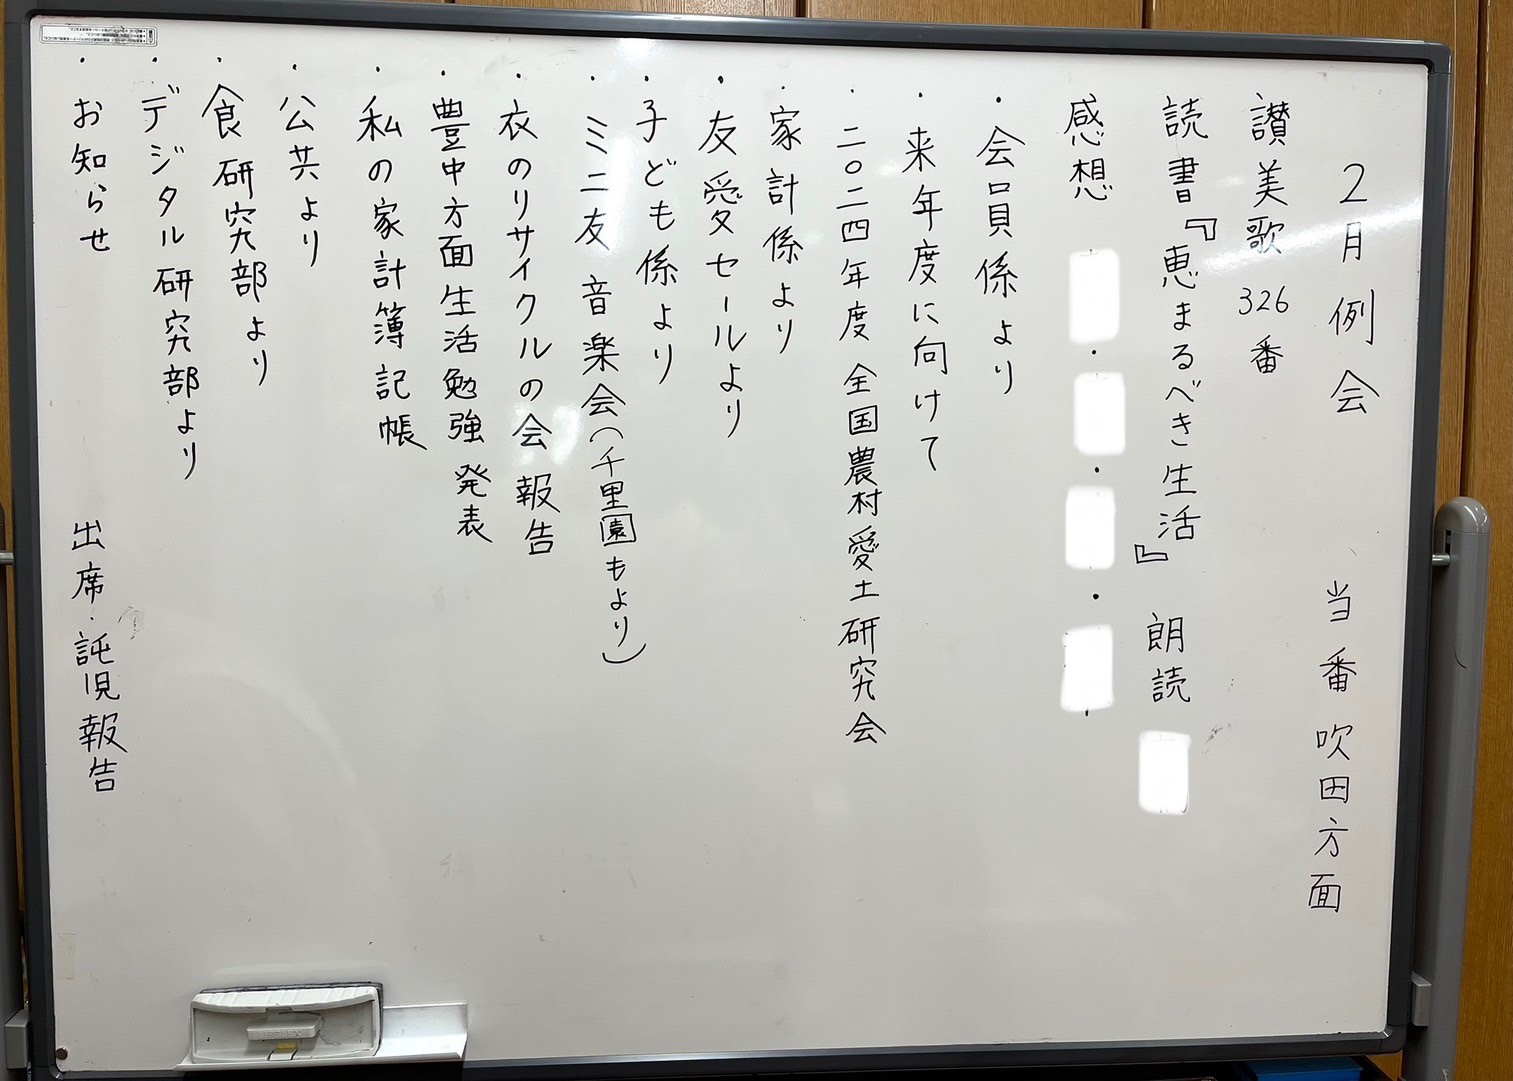 ２月例会　当番 吹田方面
讃美歌 326番
読書『恵まるべき生活』 朗読
感想 ・ ・ ・
・会員係より
・来年度に向けて
・二〇二四年度 全国農村愛土研究会
・家計係より
・友愛セールより
・子ども係より
・ミニ友 音楽会（千里園もより）
・衣のリサイクルの会 報告
・豊中方面生活勉強 発表
・私の家計簿記帳
・公共より
・食研究部より
・デジタル研究部より
・お知らせ　出席・託児報告